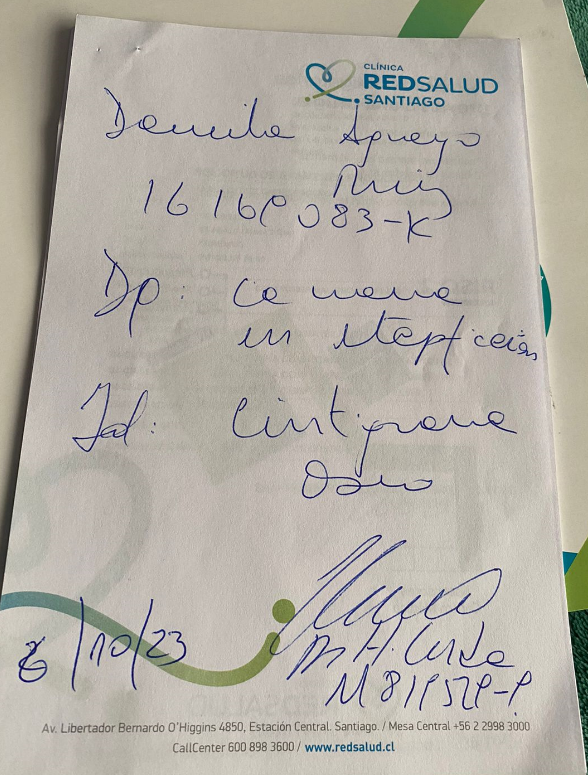 CLÍNICA
REDSALUD
SANTIAGO
Daniela Aguayo
Ruiz
16169083-K
Dg: Ca mama
en etapificación
Sol: Cintigrama
Oseo
6/10/23
Av. Libertador Bernardo O'Higgins 4850, Estación Central. Santiago. / Mesa Central +56 2 2998 3000
CallCenter 600 898 3600 / www.redsalud.cl